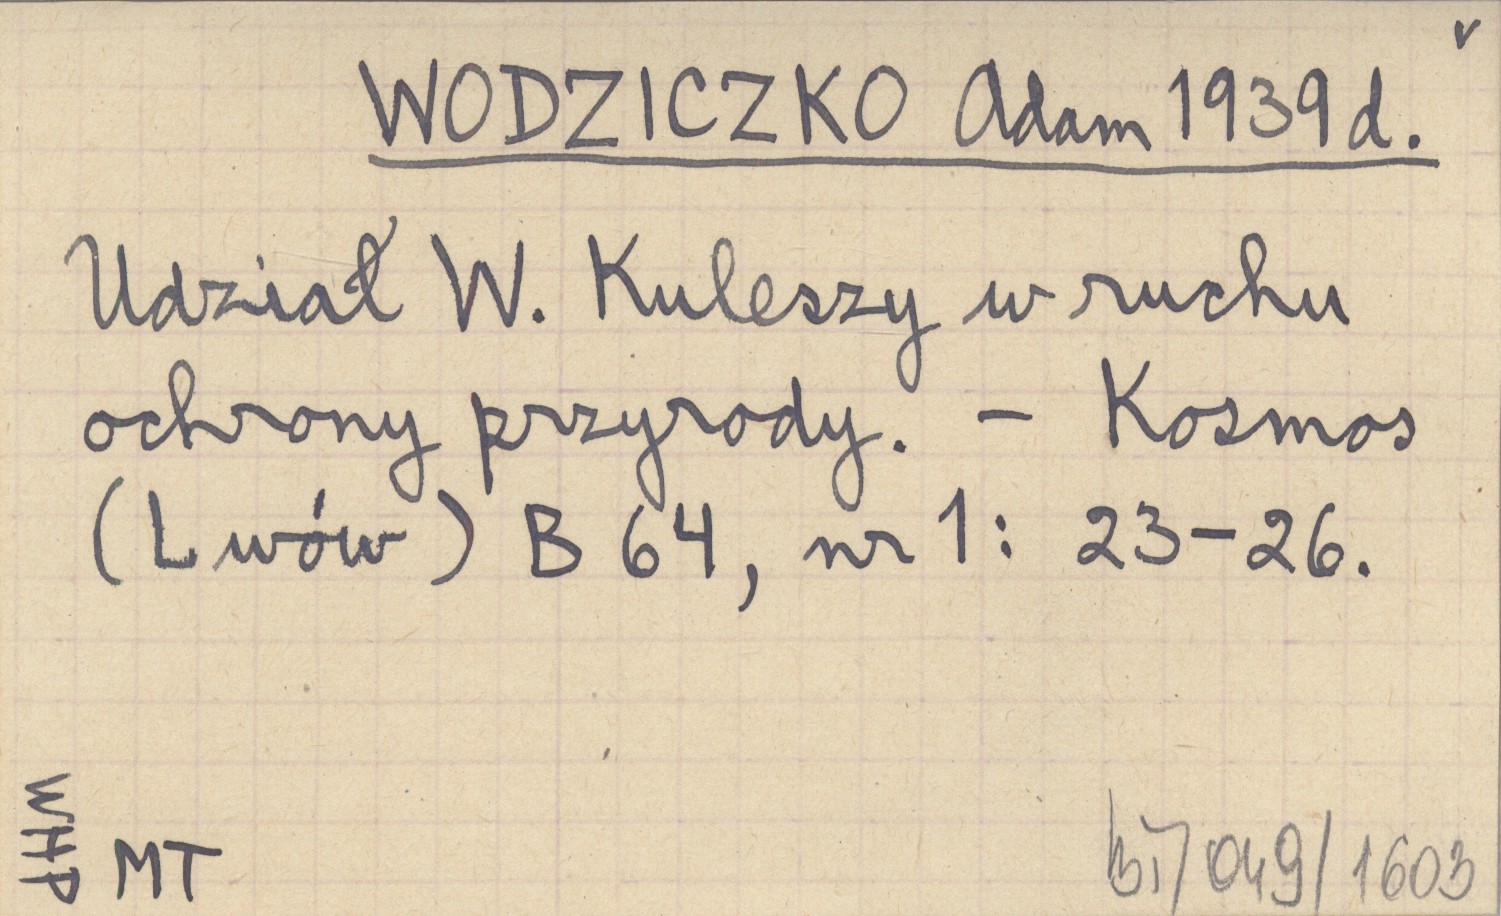 v
WODZICZKO Adam 1939 d.
Udział W. Kuleszy w ruchu
ochrony przyrody. – Kosmos
(Lwów) B 64, nr 1: 23–26.
WHP
MT
bi/049/1603